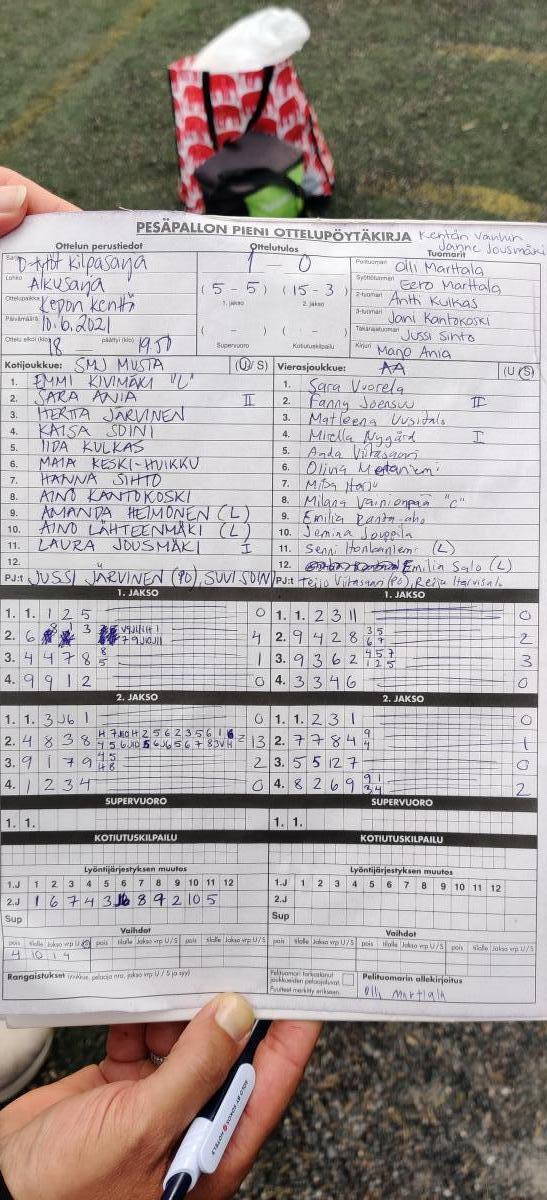 PESÄPALLON PIENI OTTELUPÖYTÄKIRJA
Kentän vanhin
Janne Jousmäki
Ottelun perustiedot
Ottelutulos
Tuomarit
D-tytöt kilpasarja
1 - 0
Pelituomari Olli Marttala
Lohko Alkusarja
(5 - 5) (15 - 3)
1. jakso 2. jakso
Syöttötuomari Eero Marttala
Ottelupaikka Kepon kenttä
2-tuomari Antti Kulkas
Päivämäärä 10.6.2021
( - ) ( - )
3-tuomari Jani Kantokoski
Takarajatuomari Jussi Sihto
Ottelu alkoi (klo) 18 päättyi (klo) 19.50
Supervuoro Kotiutuskilpailu
Kirjuri Marjo Ania
Kotijoukkue: SMJ MUSTA (U/S)
Vierasjoukkue: AA (U/S)
1. EMMI KIVIMÄKI "C"
1. Sara Vuorela
2. SARA ANIA II
2. Fanny Joensuu II
3. HERTTA JÄRVINEN
3. Matleena Uusitalo
4. KAISA SOINI
4. Mirella Nygård I
5. IIDA KULKAS
5. Anda Viitasaari
6. MAIA KESKI-HUIKKU
6. Olivia
7. HANNA SIHTO
7. Miisa Harju
8. AINO KANTOKOSKI
8. Milana Vainionpää "C"
9. AMANDA HEIMONEN (L)
9. Emilia Ranta-aho
10. AINO LÄHTEENMÄKI (L)
10. Jemina Jouppila
11. LAURA JOUSMÄKI I
11. Senni Honkaniemi (L)
12.
12. Emilia Salo (L)
PJ:t JUSSI JÄRVINEN (PJ), SUVI SOINI
PJ:t Teijo Viitasaari (PJ), Reija Harvisalo
1. JAKSO
1. JAKSO
1. 1. 1 2 5 0
1. 1. 2 3 11 0
2. 6 4
2. 9 4 2 8 3 5 6 7 2
3. 4 4 7 8 8 5 1
3. 9 3 6 2 4 5 7 1 2 5 3
4. 9 9 1 2 0
4. 3 3 4 6 0
2. JAKSO
2. JAKSO
1. 1. 3 J6 1 0
1. 1. 2 3 1 0
2. 4 8 3 8 13
2. 7 7 8 4 9 4 1
3. 9 1 7 9 4 5 4 8 2
3. 5 5 12 7 0
4. 1 2 3 4 0
4. 8 2 6 9 9 1 3 4 2
SUPERVUORO
SUPERVUORO
1. 1.
1. 1.
KOTIUTUSKILPAILU
KOTIUTUSKILPAILU
Lyöntijärjestyksen muutos
Lyöntijärjestyksen muutos
1.J 1 2 3 4 5 6 7 8 9 10 11 12
1.J 1 2 3 4 5 6 7 8 9 10 11 12
2.J 1 6 7 4 3 J6 8 9 2 10 5
2.J
Sup
Sup
Vaihdot
Vaihdot
pois tilalle Jakso vrp U / S pois tilalle Jakso vrp U / S pois tilalle Jakso vrp U / S
pois tilalle Jakso vrp U / S pois tilalle Jakso vrp U / S pois tilalle Jakso vrp U / S
4 10 1 4
Rangaistukset (joukkue, pelaaja nro, jakso vrp U / S ja syy)
Pelituomari tarkastanut joukkueiden pelaajaluvat. Puutteet merkitty erikseen.
Pelituomarin allekirjoitus
Olli Marttala
SOLO BY SOKOS HOTELS